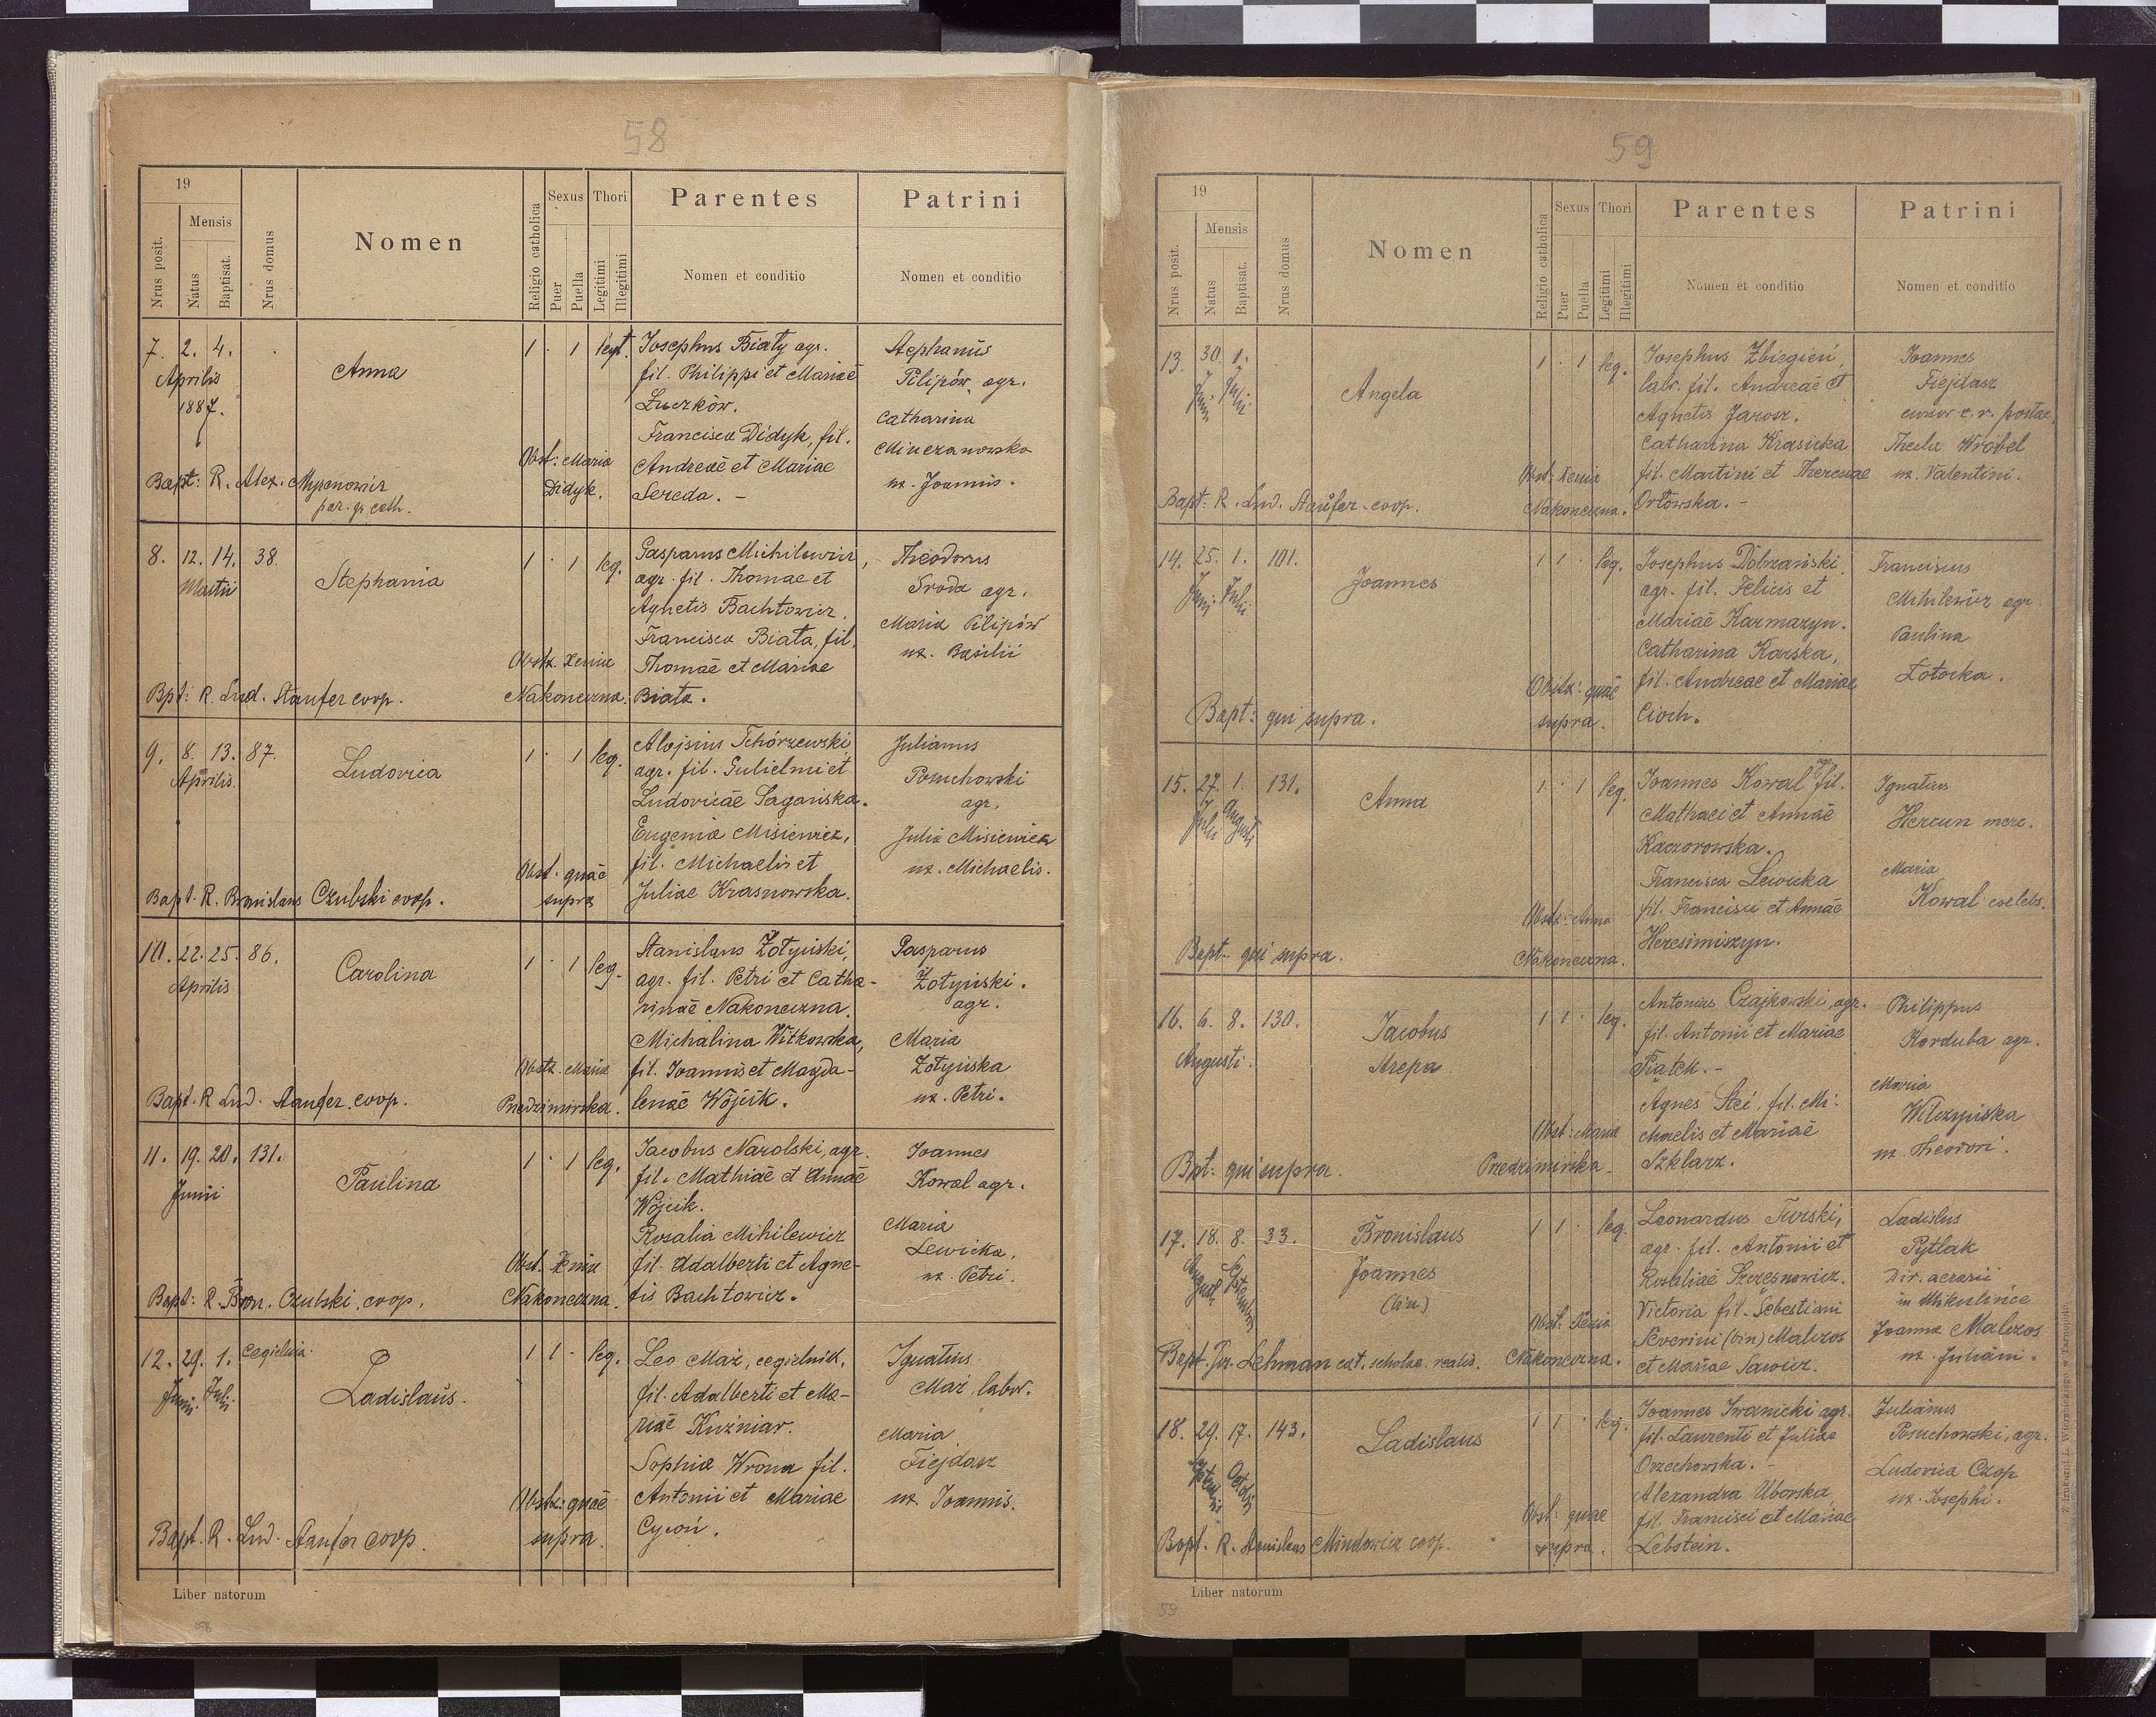 58
19
Nrus posit.
Mensis
Natus
Baptisat.
Nrus domus
Nomen
Religio catholica
Sexus
Puer
Puella
Thori
Legitimi
Illegitimi
Parentes
Nomen et conditio
Patrini
Nomen et conditio
7. 2. 4.
Aprilis
1887.
Anna
1 · 1 legt.
Josephus Biały agr.
fil. Philippi et Mariae
Łuczków.
Francisca Didyk, fil.
Andreae et Mariae
Sereda. –
Stephanus
Pilipów, agr.
Catharina
Minczanowska
ux. Joannis.
Obst: Maria
Didyk.
Bapt: R. Alex.
par. gr. cath.
8. 12. 14. 38.
Martii
Stephania
1 · 1 leg.
Gasparus Michilewicz,
agr. fil. Thomae et
Agnetis Bachtowicz.
Francisca Biała, fil.
Thomae et Mariae
Biała.
Theodorus
Sroda agr.
Maria Pilipów
ux. Basilii
Obstx. Xenia
Nakoneczna.
Bpt: R. Lud. Staufer coop.
9. 8. 13. 87.
Aprilis.
Ludovica
1 · 1 leg.
Alojsius Tchórzewski
agr. fil. Gulielmi et
Ludovicae Sagańska.
Eugenia Misiewicz,
fil. Michaelis et
Juliae Krasnowska.
Julianus
Posuchowski
agr.
Julia Misiewicz
ux. Michaelis.
Obst. quae
supra
Bapt. R. Bronislaus Czubski coop.
10. 22. 25. 86.
Aprilis
Carolina
1 · 1 leg.
Stanislaus Żołyński,
agr. fil. Petri et Catha-
rinae Nakoneczna.
Michalina Witkowska,
fil. Joannis et Magda-
lenae Wójcik.
Gasparus
Żołyński.
agr.
Maria
Żołyńska
ux. Petri.
Obstx. Maria
Pnedzimirska.
Bapt. R. Lud. Staufer. coop.
11. 19. 20. 131.
Junii
Paulina
1 · 1 leg.
Jacobus Narolski, agr.
fil. Mathiae et Annae
Wójcik.
Rosalia Mihilewicz
fil. Adalberti et Agne-
tis Bachtowicz.
Joannes
Kowal agr.
Maria
Lewicka.
ux. Petri.
Obst. Xenia
Nakoneczna.
Bapt: R. Bron. Czubski, coop.
12. 29. 1. cegielnia.
Junii. Julii.
Ladislaus.
1 1 · leg.
Leo Maź, cegielnik,
fil. Adalberti et Ma-
riae Kuźniar.
Sophia Wrona fil.
Antonii et Mariae
Cycoń.
Ignatius
Maź labor.
Maria
Fiejdasz
ux. Joannis.
Obstx: quae
supra.
Bapt. R. Lud. Staufer coop.
Liber natorum
58
59
19
Nrus posit.
Mensis
Natus
Baptisat.
Nrus domus
Nomen
Religio catholica
Sexus
Puer
Puella
Thori
Legitimi
Illegitimi
Parentes
Nomen et conditio
Patrini
Nomen et conditio
13. 30. 1.
Junii. Julii.
Angela
1 · 1 leg.
Josephus Zbiegień,
labr. fil. Andreae et
Agnetis Jarosz.
Catharina Krasicka
fil. Martini et Theresiae
Orłowska. –
Joannes
Fiejdasz
cursor c. r. postae
Thecla Wrobel
ux. Valentini.
Obst: Xenia
Nakoneczna.
Bapt: R. Lud. Staufer. coop.
14. 25. 1. 101.
Junii. Julii
Joannes
1 1 · leg.
Josephus Dobrzański
agr. fil. Felicis et
Mariae Karmazyn.
Catharina Karska,
fil. Andreae et Mariae
Cioch.
Franciscus
Mihilewicz agr.
Paulina
Łotocka.
Obstx: quae
supra.
Bapt: qui supra.
15. 27. 1. 131.
Julii Augusti
Anna
1 · 1 leg.
Joannes Kowal agr. fil.
Mathaei et Annae
Kaczorowska.
Francisca Lewicka
fil. Francisci et Annae
Heresimiszyn.
Ignatius
Hercun merc.
Maria
Kowal coelebs.
Obstx: Anna
Nakoneczna.
Bapt. qui supra.
16. 6. 8. 130.
Augusti.
Jacobus
1 1 · leg.
Antonius Czajkowski, agr.
fil. Antonii et Mariae
Piątek. –
Agnes Steć, fil. Mi-
chaelis et Mariae
Szklarz.
Philippus
Korduba agr.
Maria
Wilczyńska
ux. Theodori.
Obst: Maria
Pnedzimirska.
Bpt: qui supra.
17. 18. 8. 33.
Augusti Septembris
Bronislaus
Joannes
(bin.)
1 1 · leg.
Leonardus Turski,
agr. fil. Antonii et
Rosaliae Szczęsnowicz.
Victoria fil. Sebestiani
Severini (bin) Malczos
et Mariae Sawicz.
Ladislus
Pytlak
dir. aerarii
in Mikulińce
Joanna Malczos
ux. Juliani.
Obst: Xenia
Nakoneczna.
Bapt. Fr. Lehman cat. scholae realis.
18. 29. 17. 143.
Septembris Octobris
Ladislaus
1 1 · leg.
Joannes Iwanicki agr.
fil. Laurenti et Juliae
Orzechowska. –
Alexandra Uborska
fil. Francisci et Mariae
Lebstein.
Julianus
Posuchowski, agr.
Ludovica Czop
ux. Josephi.
Obst: quae
supra.
Bapt. R. Stanislaus Mindowicz coop.
Liber natorum
59
Z drukarni L. Wierzbickiego w Tarnopolu.